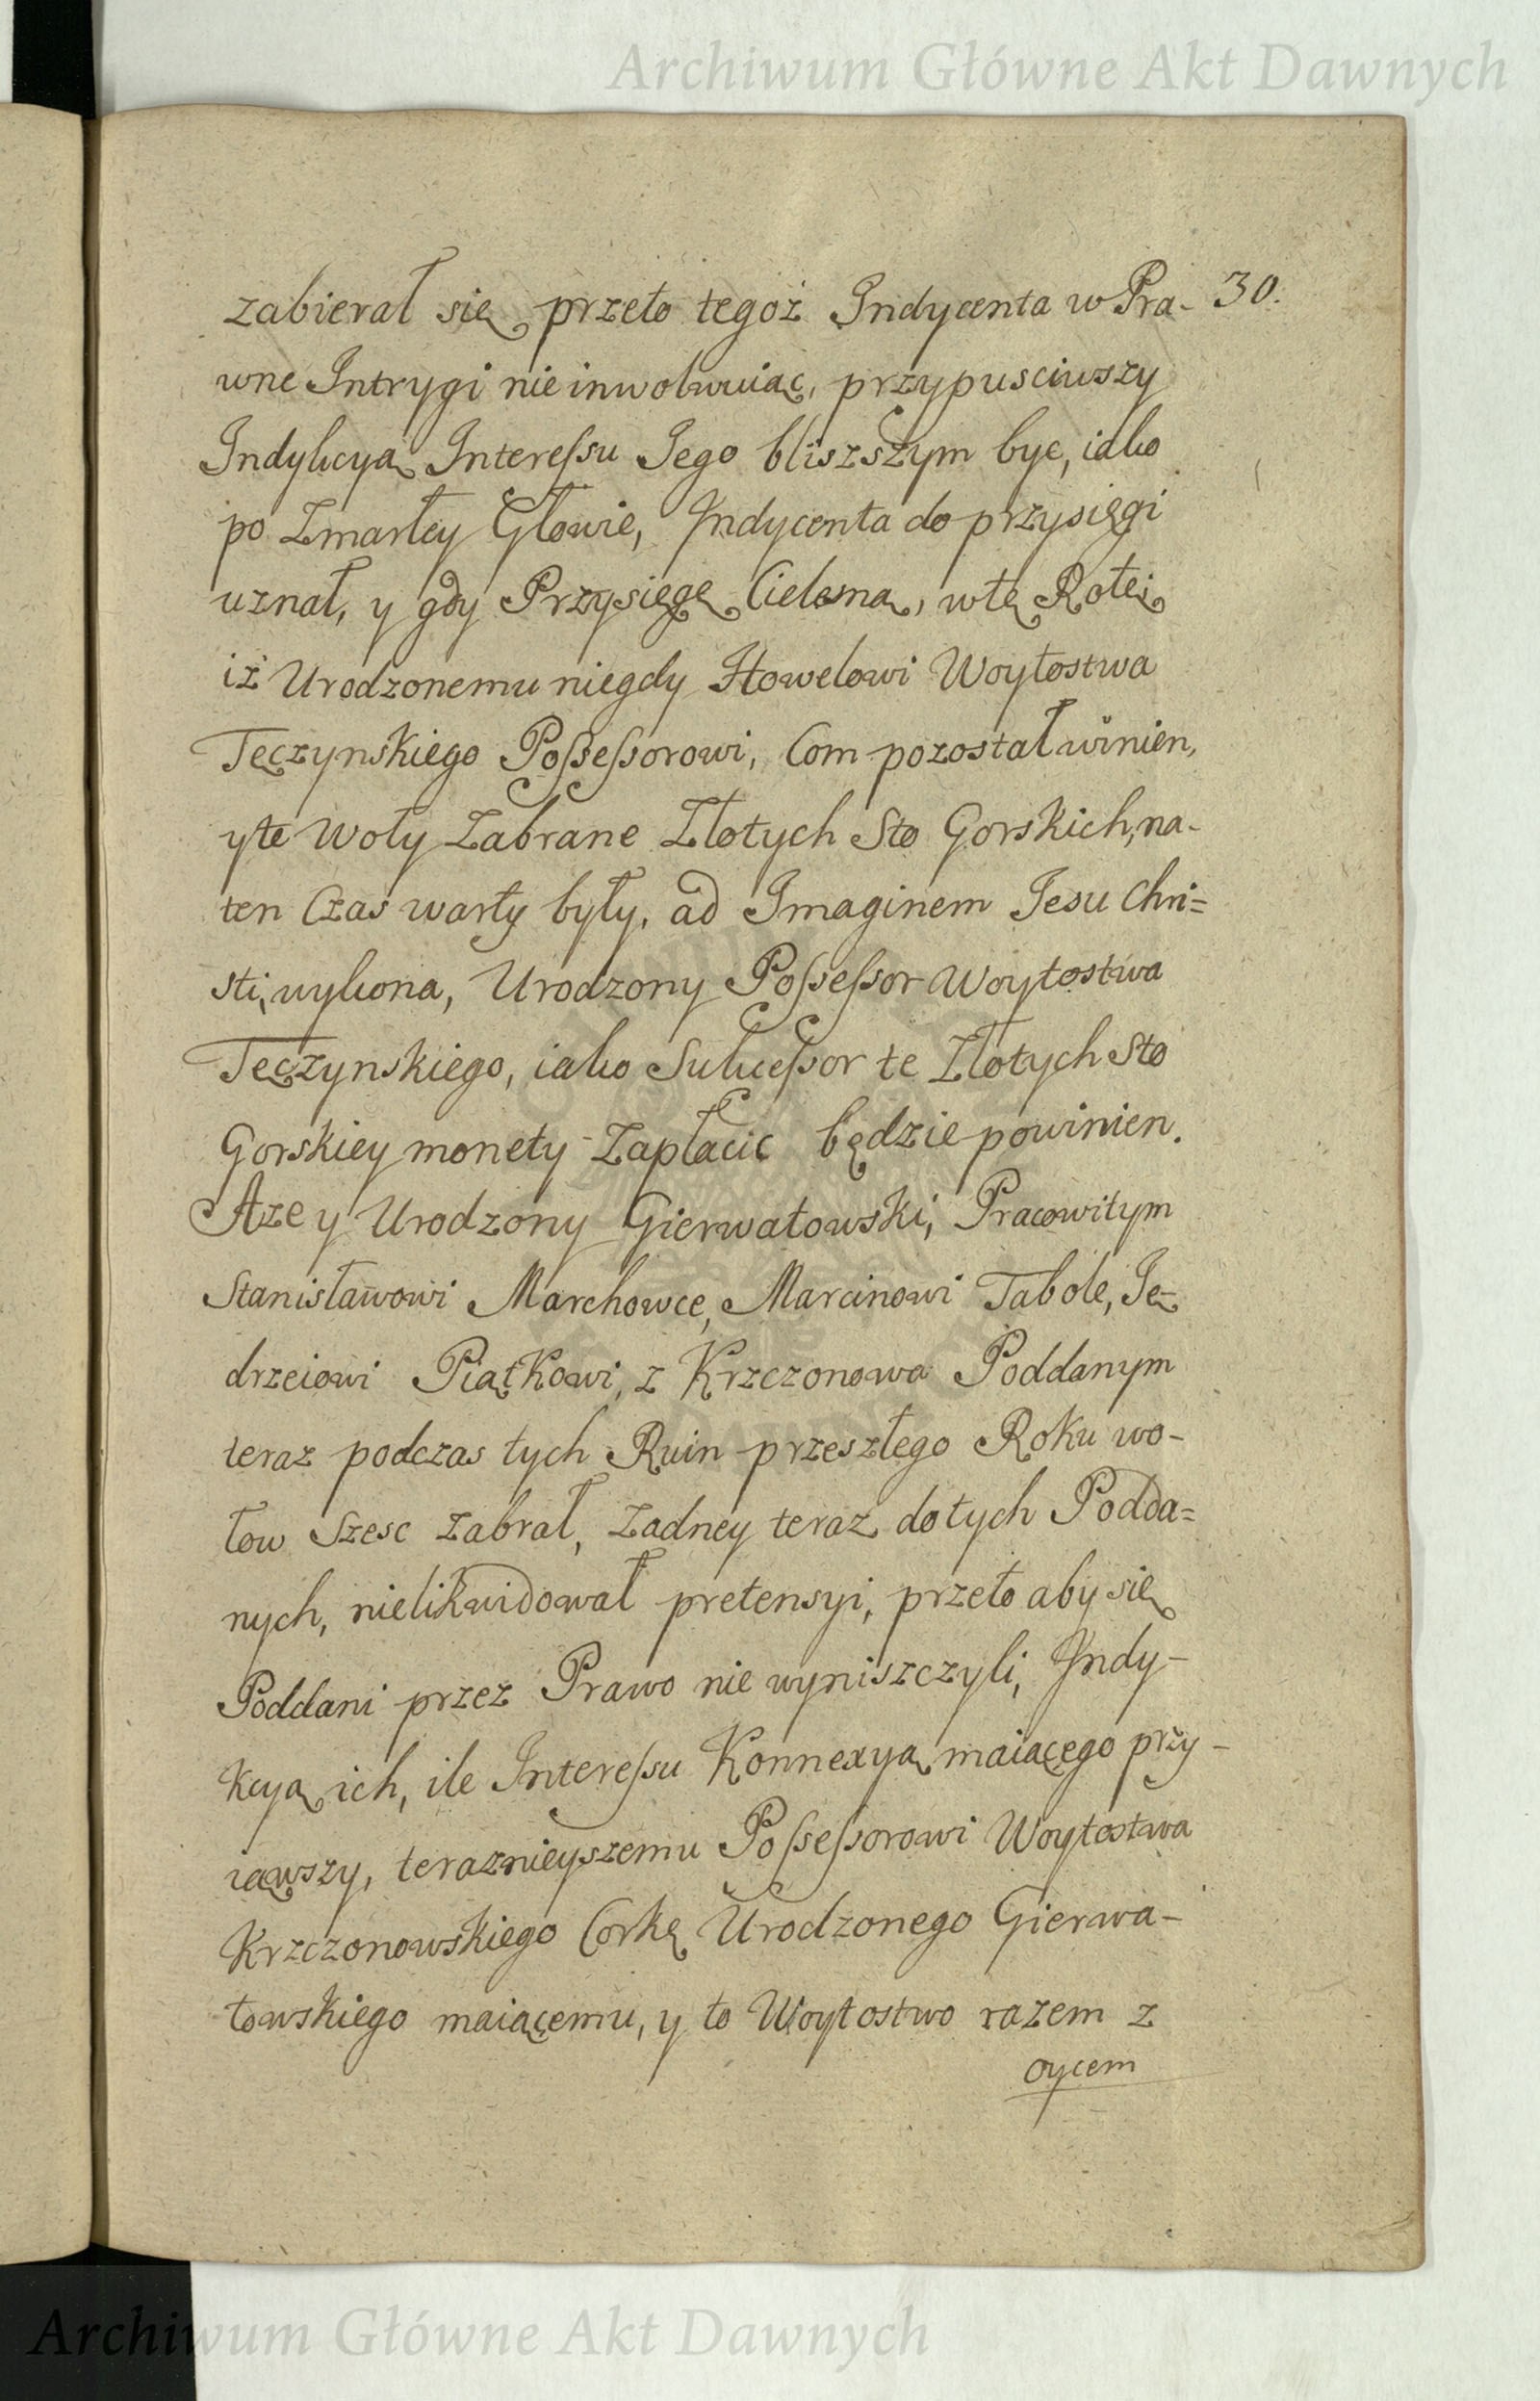 Archiwum Główne Akt Dawnych
30.
zabierał się, przeto tegoż Indycenta w Pra-
wne Intrygi nie inwolwuiąc, przypusciwszy
Indykcyą Interessu Jego bliszszym byc, iako
po Zmarłey Głowie, Indycenta do przysięgi
uznał, y gdy Przysięgę Cielesną, w tę Rotę
iż Urodzonemu niegdy Howelowi Woytostwa
Tęczynskiego Possessorowi, Com pozostał winien,
y te Woły Zabrane Złotych Sto Gorskich, na-
ten Czas warty były, ad Imaginem Jesu Chri=
sti, wykona, Urodzony Possessor Woytostwa
Tęczynskiego, iako Sukcessor te Złotych Sto
Gorskiey monety Zapłacic będzie powinien.
A ze y Urodzony Gierwatowski, Pracowitym
Stanisławowi Marchowce, Marcinowi Tabole, Ję-
drzeiowi Piątkowi, z Krzczonowa Poddanym
teraz podczas tych Ruin przeszłego Roku wo-
łow Szesc zabrał, Zadney teraz do tych Podda=
nych, nielikwidował pretensyi, przeto aby się
Poddani przez Prawo nie wyniszczyli, Indy-
kcyą ich, ile Interessu Konnexyą maiącego przy-
iąwszy, teraznieyszemu Possessorowi Woytostwa
Krzczonowskiego Corkę Urodzonego Gierwa-
towskiego maiącemu, y to Woytostwo razem z
oycem
Archiwum Główne Akt Dawnych